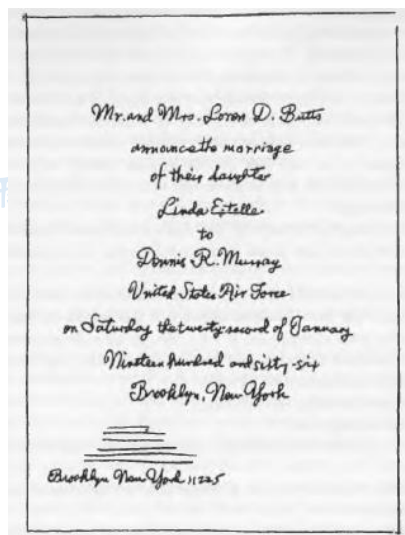 Mr. and Mrs. Loren D. Butts
announce the marriage
of their daughter
Linda Estelle
to
Dennis R. Murray
United States Air Force
on Saturday the twenty-second of January
Nineteen hundred and sixty-six
Brooklyn, New York
Brooklyn New York 11225